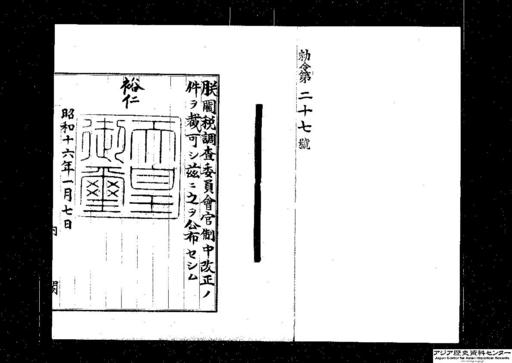 勅令第二十七號
朕關税調査委員會官制中改正ノ
件ヲ裁可シ茲ニ之ヲ公布セシム
裕仁
天皇
御璽
昭和十六年一月七日
内閣
アジア歴史資料センター
Japan Center for Asian Historical Records